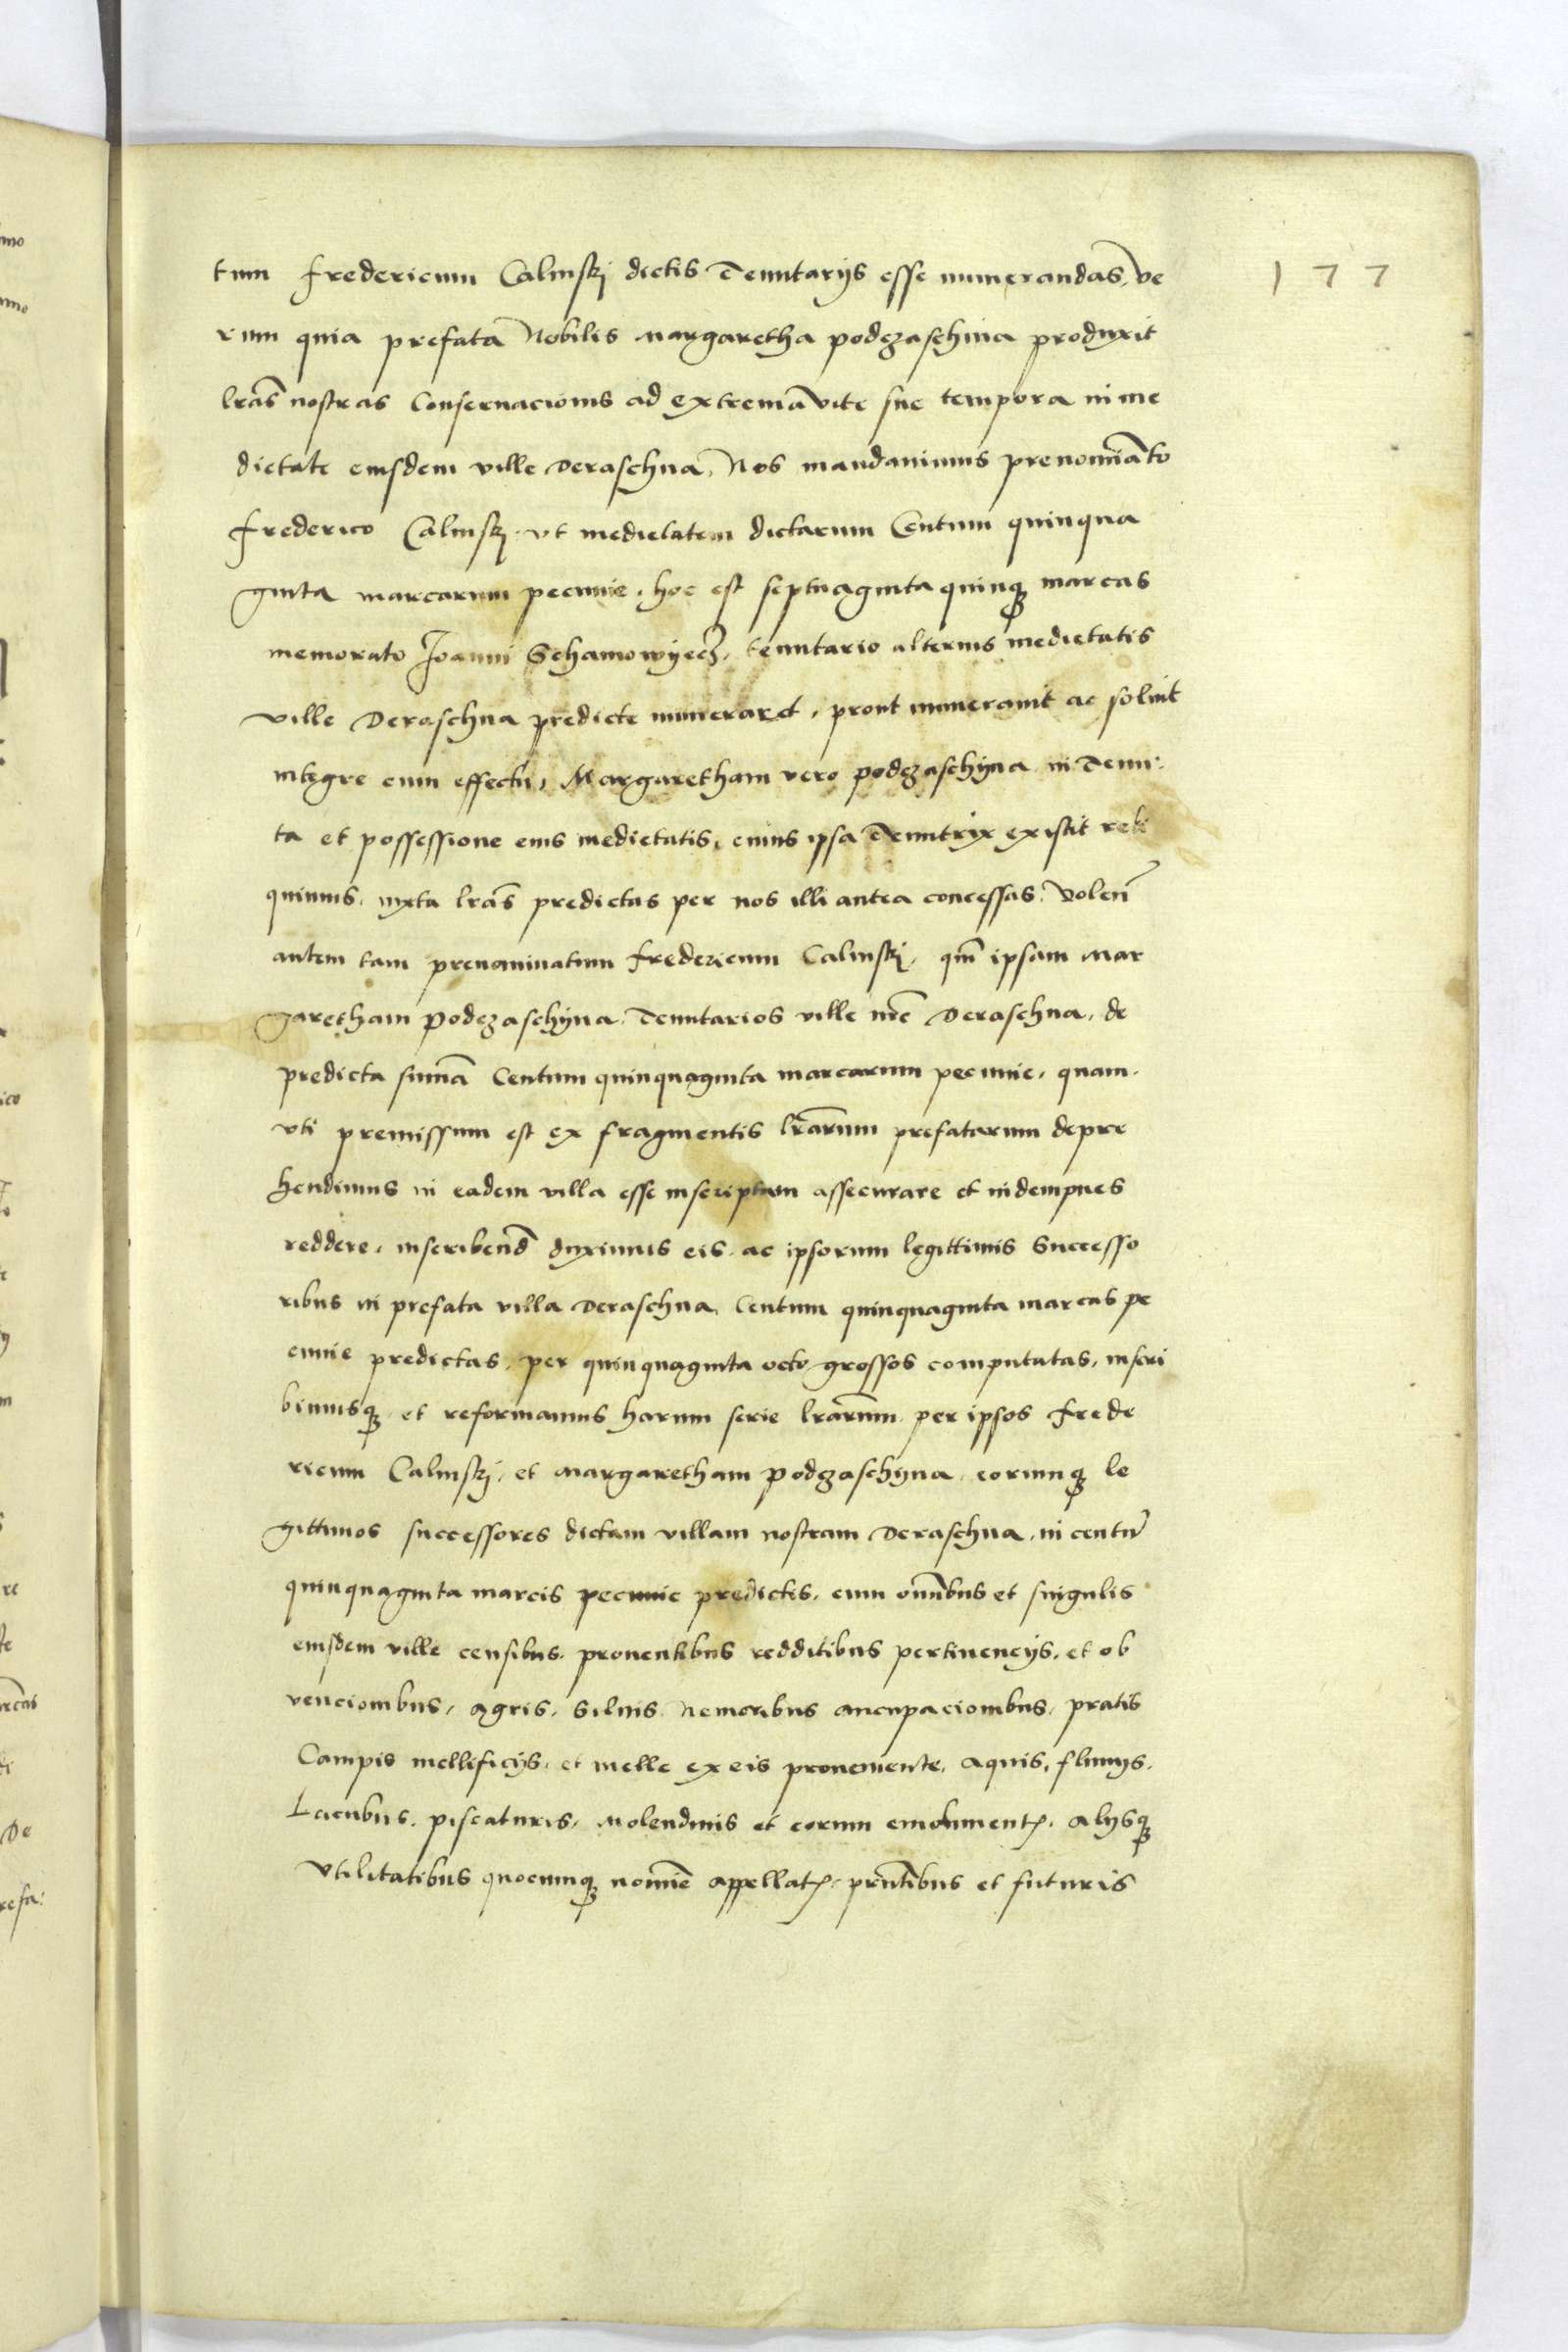 177
tum Fredericum Calinskj dictis Tenutarijs esse numerandas, Ve
rum quia prefata Nobilis Margaretha podczaschina produxit
lr̃as nostras Conseruacionis ad extrema vite sue tempora in me
dietate eiusdem ville Deraschna, Nos mandauimus prenomiã͂to
Frederico Calinskj vt medietatem dictarum Centum quinqua
ginta marcarum pecunie, hoc est septuaginta quinqȝ marcas
memorato Joanni Schamowyecz, tenutario alterius medietatis
ville Deraschna predicte numeraret, prout numerauit ac soluit
integre cum effectu, Margaretham vero podczaschyna in Tenu:
ta et possessione eius medietatis, cuius ipsa Tenutrix existit reli
quimus, iuxta lr̃as predictas per nos illi antea concessas, Volen̄
autem tam prenominatum Fredericum Calinskj, qm̃ ipsam Mar
garetham Podczaschyna Tenutarios ville nr̃e Deraschna, de
predicta sum̃a Centum quinquaginta marcarum pecunie, quam
vti premissum est ex fragmentis lr̃arum prefatarum depre
hendimus in eadem villa esse inscriptam assecurare et indempnes
reddere, inscribend̃ duximus eis, ac ipsorum legittimis Successo
ribus in prefata villa Deraschna, Centum quinquaginta marcas pe
cunie predictas, per quinquaginta octo grossos computatas, inscri
bimusqȝ et reformamus harum serie lr̃arum per ipsos Frede
ricum Calinskj, et Margaretham Podczaschyna eorumqȝ le
gittimos successores dictam villam nostram Deraschna, in centū
quinquaginta marcis pecunie predictis, cum om̃ibus et singulis
eiusdem ville censibus, prouentibus redditibus pertinencijs, et ob
uencionibus, Agris, Siluis Nemoribus aucupacionibus, pratis
Campis mellificijs, et melle ex eis proueniente, Aquis, fluuijs,
Lacubus, piscaturis, Molendinis et eorum emolument̃, Alijsqȝ
Vtilitatibus quocunqȝ nomĩe appellat̃, pr̃ntibus et futuris